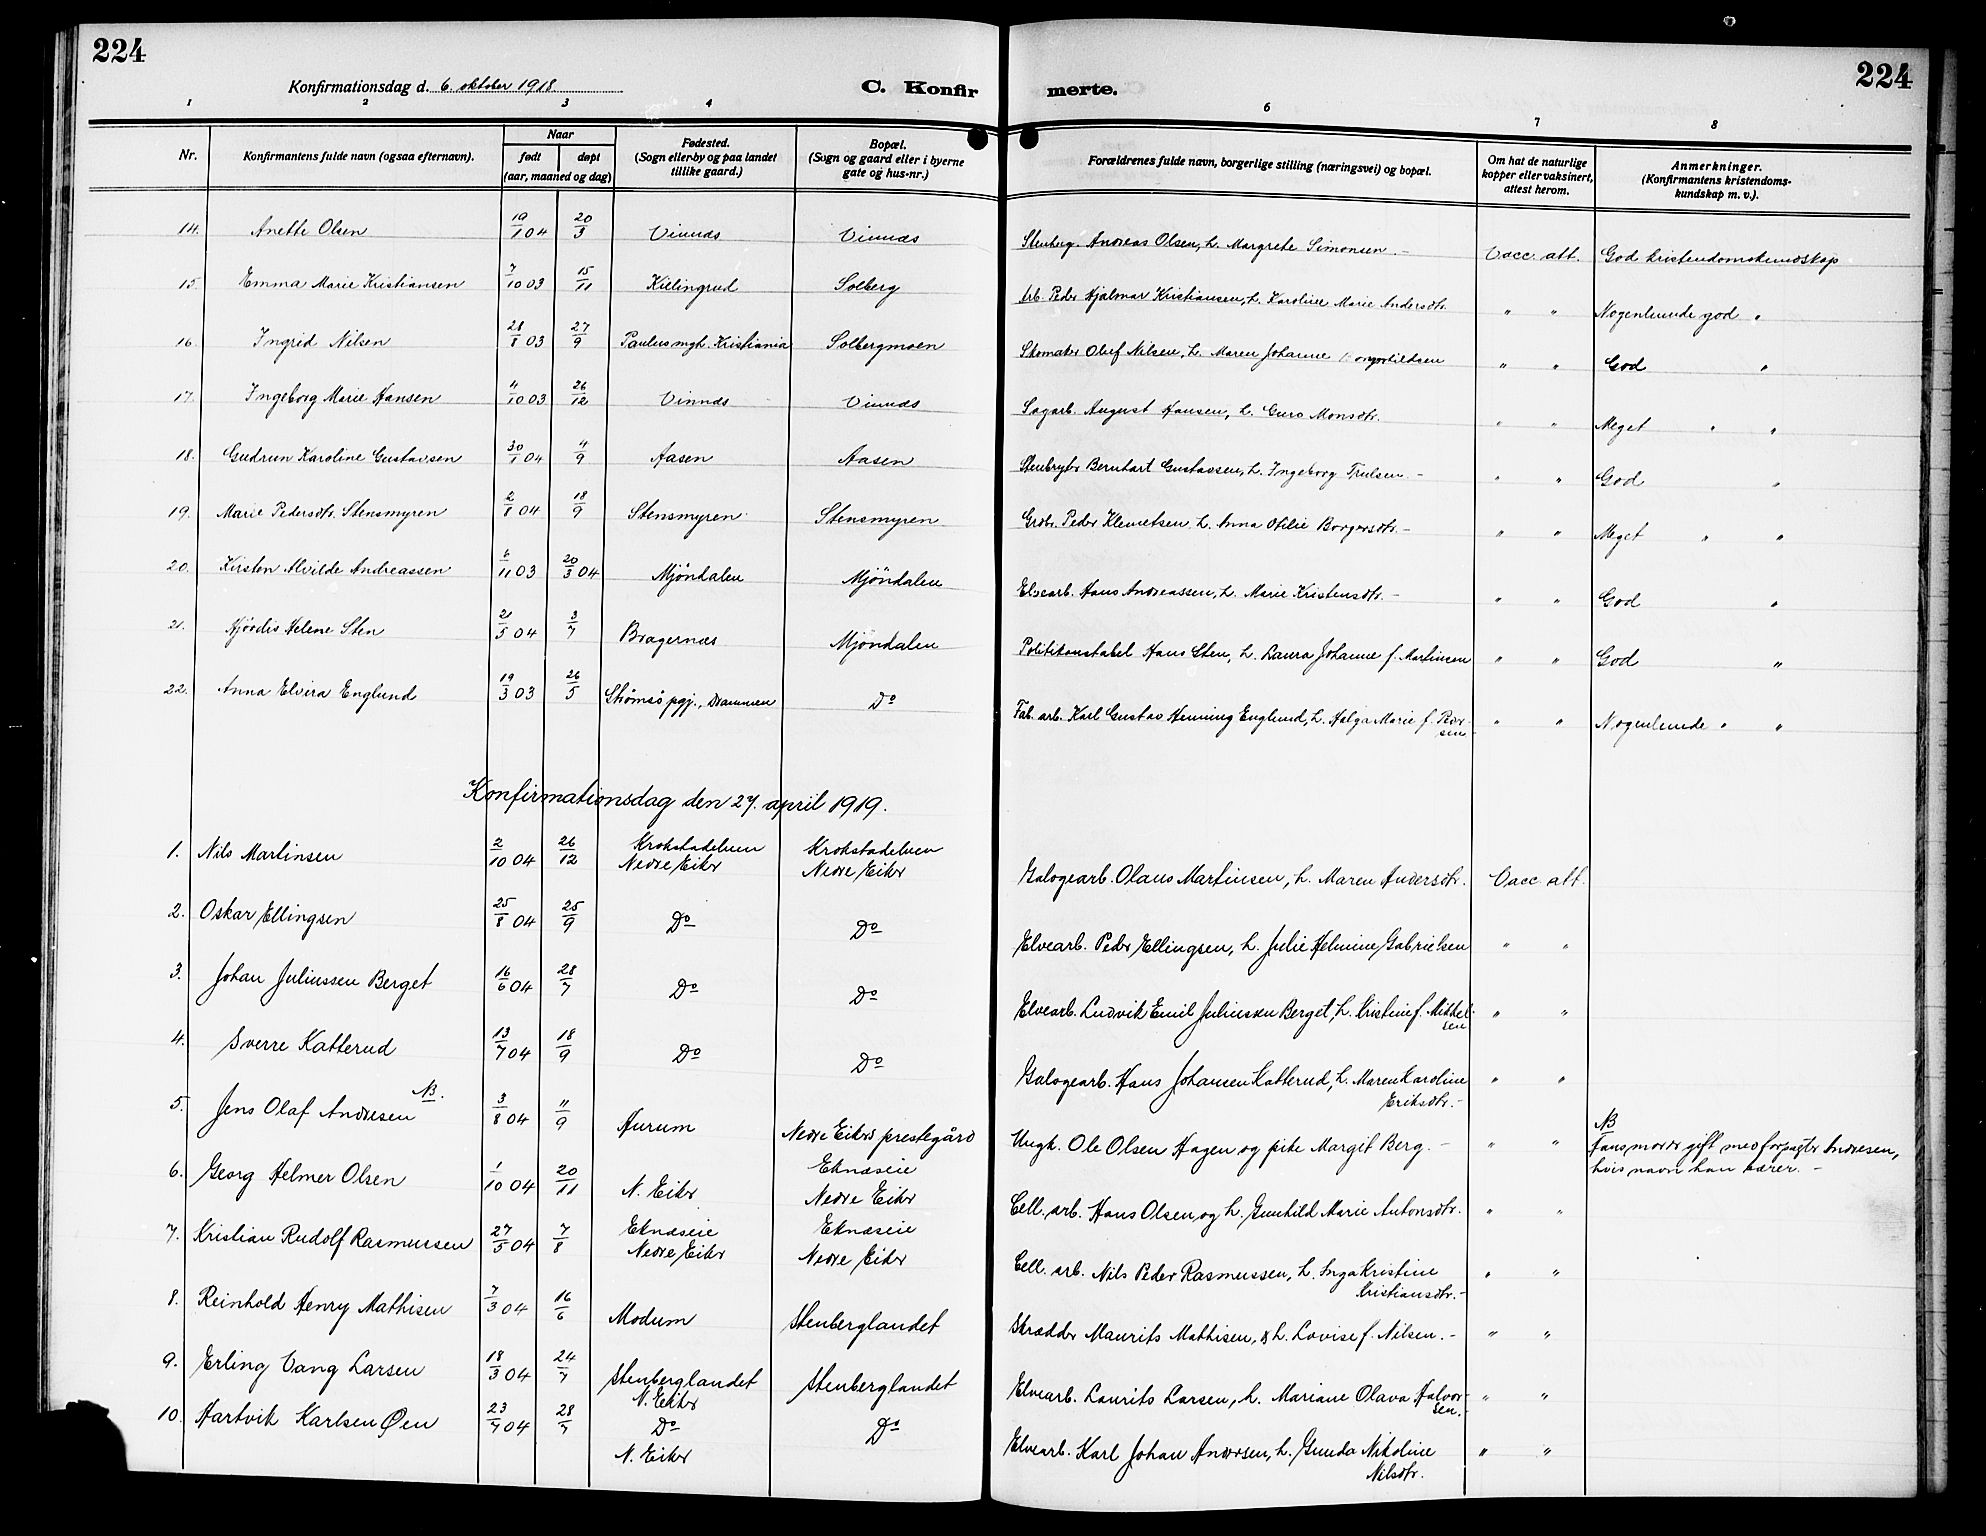 224
224
Konfirmationsdag d. 6. oktober 1918
C. Konfir
merte.
1 2 3 4 6 7 8
Nr. Konfirmantens fulde navn (ogsaa efternavn). Naar født døpt (aar, maaned og dag) Fødested. (Sogn eller by og paa landet tillike gaard.) Bopæl. (Sogn og gaard eller i byerne gate og hus-nr.) Forældrenes fulde navn, borgerlige stilling (næringsvei) og bopæl. Om hat de naturlige kopper eller vaksinert, attest herom. Anmerkninger. (Konfirmantens kristendoms- kundskap m. v.).
14. Anette Olsen 19/1 04 20/3 Vinnæs Vinnæs Stenhug. Andreas Olsen, h. Margrete Simonsen. – Vacc. att. God kristendomskundskap
15. Emma Marie Kristiansen 7/10 03 15/11 Killingrud Solberg Arb. Peder Hjalmar Kristiansen, h. Karoline Marie Andersdtr. " " Nogenlunde god "
16. Ingrid Nilsen 28/8 03 27/9 Paulus mgh. Kristiania Solbergmoen Skomaker Oluf Nilsen, h. Maren Johanne " " God "
17. Ingeborg Marie Hansen 4/10 03 26/12 Vinnæs Vinnæs Sagarb. August Hansen, h. Guro Monsdtr. " " Meget " "
18. Gudrun Karoline Gustavsen 30/1 04 4/9 Aasen Aasen Stenbryter Bernhart Gustavsen, h. Ingeborg Trulsen. – " " God "
19. Marie Pedersdtr. Stensmyren 2/8 04 18/9 Stensmyren Stensmyren Grdbr. Peder Klemetsen h. Anna Otilie Borgersdtr. – " " Meget " "
20. Kirsten Alvilde Andreassen 6/11 03 20/3 04 Mjöndalen Mjöndalen Elvearb. Hans Andreassen, h. Marie Kristensdtr. – " " God "
21. Hjördis Helene Sten 2/5 04 3/7 Bragernæs Mjöndalen Politikonstabel Hans Sten, h. Laura Johanne f. Martinsen " " God "
22. Anna Elvira Englund 19/3 03 26/5 Strømsø pgj., Drammen Do Fab. arb. Karl Gustav Henning Englund, h. Helga Marie f. Peder-
sen " " Nogenlunde " "
Konfirmationsdag den 27. april 1919.
1. Nils Martinsen 2/10 04 26/12 Krokstadelven Nedre Eiker Krokstadelven Nedre Eiker Galogearb. Olaus Martinsen, h. Maren Andersdtr. Vacc. att.
2. Oskar Ellingsen 25/8 04 25/9 Do Do Elvearb. Peder Ellingsen, h. Julie Helmine Gabrielsen " "
3. Johan Juliussen Berget 16/6 04 28/7 Do Do Elvearb. Ludvik Emil Juliussen Berget, h. Kristine f. Mikkel-
sen " "
4. Sverre Katterud 13/7 04 18/9 Do Do Galogearb. Hans Johansen Katterud, h. Maren Karoline
Eriksdtr. – " "
5. Jens Olaf Andresen NB. 3/8 04 11/9 Hurum Nedre Eikers prestegård Ungk. Ole Olsen Hagen og pike Margit Berg. – " " NB
Hans moder gift med forpagter Andresen,
hvis navn han bærer. –
6. Georg Helmer Olsen 1/10 04 20/11 N. Eiker Eknæseie Nedre Eiker Cell. arb. Hans Olsen og h. Gunhild Marie Antonsdtr. " "
7. Kristian Rudolf Rasmussen 27/5 04 7/8 Eknæseie Nedre Eiker Eknæseie Nedre Eiker Cell. arb. Nils Peder Rasmussen, h. Inga Kristine
Kristiansdtr. – " "
8. Reinhold Henry Mathisen 7/3 04 16/6 Modum Stenberglandet Skrædder Maurits Mathisen, & h. Lovise f. Nilsen. – " "
9. Erling Vang Larsen 18/3 04 24/7 Stenberglandet N. Eiker Stenberglandet Elvearb. Laurits Larsen, h. Mariane Olava Halvor-
sen. – " "
10. Hartvik Karlsen Øen 23/4 04 28/7 Do N. Eiker Do Elvearb. Karl Johan Andersen, h. Gunda Nikoline
Nilsdtr. " "